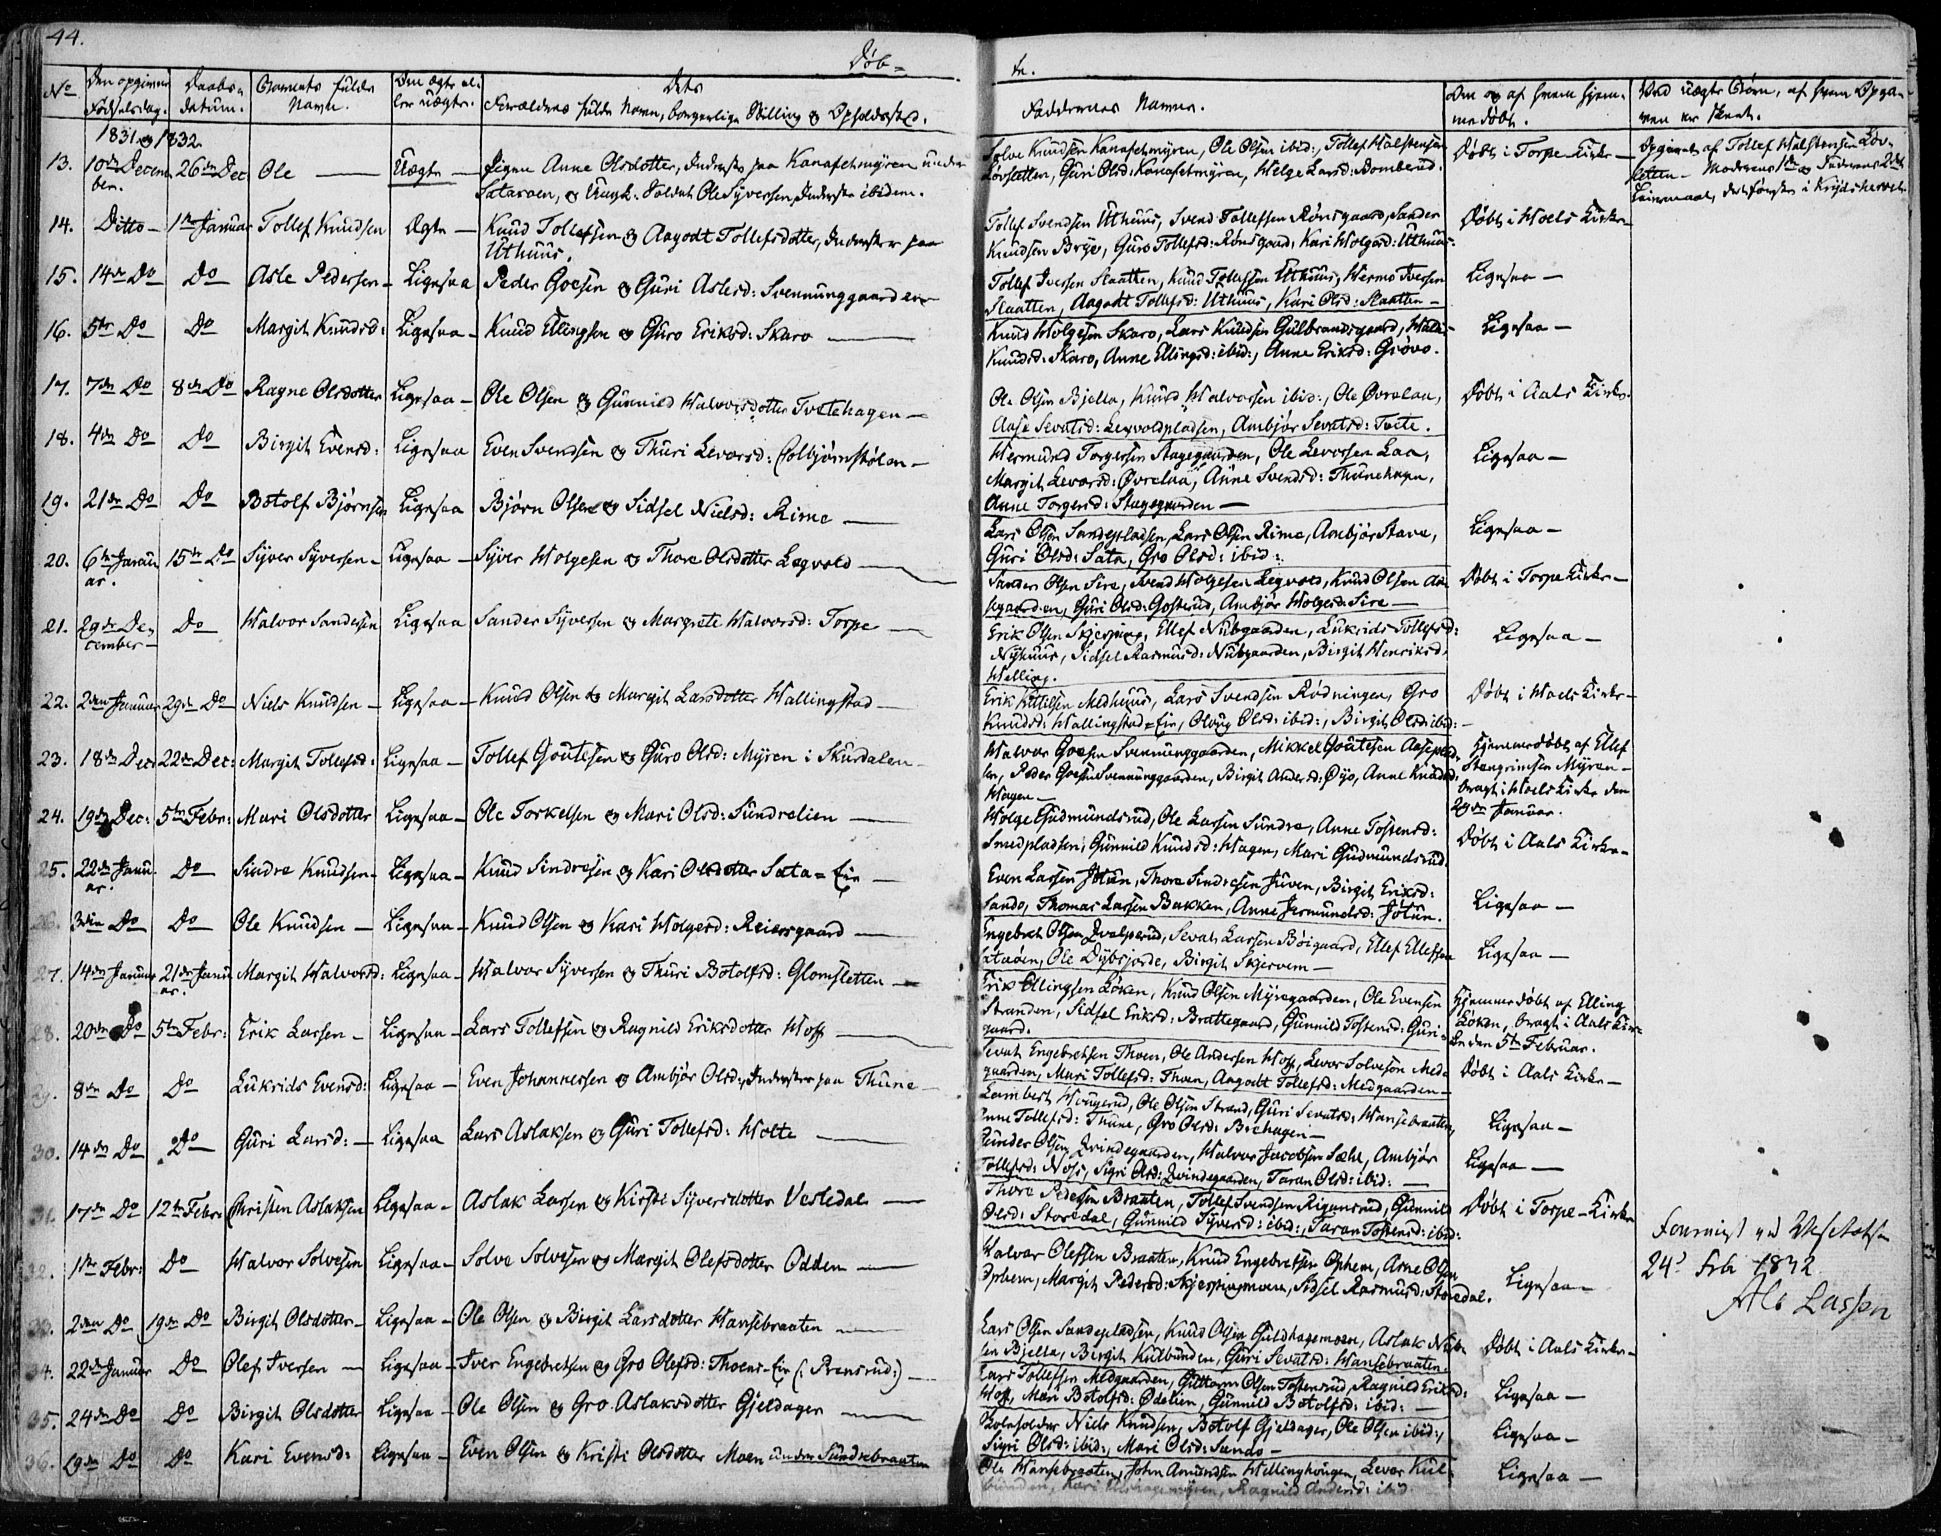 44.
Døb=
te.
No
Den opgivne Fødselsdag.
Daabs-datum.
Barnets fulde Navn.
Om ægte eller uægte.
Dets Forældres fulde Navn, borgerlige Stilling og Opholdssted.
Faddernes Navne.
Om og af hvem hjemmedøbt.
Ved uægte Børn, af hvem Opgaven er skeet.
1831 og 1832
13. 10de December. 26de Dec Ole — Uægte — Pigen Anne Olsdotter, Inderste paa Kanafetmyren under
Sataroen, og Ole Syversen, Inderste ibidem.
Solve Knudsen Kanafetmyren, Ole Olsen ibid:, Tollef Halstensen
Guri Olsd: Kanafetmyren, Helge Larsd:
Døbt i Torpe Kirke —
Opgivet af Tollef Halstensen
Moderens 1de og Faderens 2det
Leiermaal,
14. Ditto — 1ste Januar Tollef Knudsen Ægte — Knud Tollefsen og Aagodt Tollefsdotter, Inderster paa
Uthuus.
Tollef Svendsen Uthuus, Svend Tollefsen Rønsgaard, Sander
Knudsen Brye, Guro Tollefsd: Rønsgaard, Kari Holgsd: Uthuus.
Døbt i Hoels Kirke —
15. 14de Do Do Asle Pedersen — Ligesaa Peder Goesen og Guri Aslesd: Svennunggaarden
Tollef Iversen Slaatten, Knud Tollefsen Uthuus, Hermo Iversen
Slaatten, Aagodt Tollefsd: Uthuus, Kari Olsd: Slaatten —
Ligesaa —
16. 5te Do Do Margit Knudsd: Ligesaa — Knud Ellingsen og Guro Eriksd: Skaro —
Knud Holgesen Skaro, Lars Knudsen Gulbrandsgaard,
Knudsd: Skaro, Anne Ellingsd: ibid:, Anne Eriksd: Grøvo.
Ligesaa —
17. 7de Do 8de Do Ragne Olsdotter Ligesaa — Ole Olsen og Gunnild Halvorsdotter Tvetehagen —
Ole Olsen Bjella, Knud Halvorsen ibid:, Ole Øvrelaa,
Aase Sevatsd: Legvoldpladsen, Ambjør Sevatsd: Tveite.
Døbt i Aals Kirke.
18. 4de Do Do Birgit Evensd: Ligesaa Even Svendsen og Thuri Levorsd: Colbjørnstølen —
Hermund Torgersen Stagegaarden, Ole Levorsen Laa,
Margit Levorsd: Øvrelaa, Anne Svendsd: Thunehagen,
Anne Torgersd: Stagegaarden —
Ligesaa —
19. 21de Do Do Botolf Bjørnsen Ligesaa Bjørn Olsen og Sidsel Nielsd: Rime —
Lars Olsen Sandepladsen, Lars Olsen Rime, Ambjør Stave,
Guri Olsd: Sata, Gro Olsd: ibid:.
Ligesaa —
20. 6te Januar. 15de Do Syver Syversen — Ligesaa — Syver Holgesen og Thore Olsdotter Legvold —
Sander Olsen Sire, Svend Holgesen Legvold, Knud Olsen Aa-
segaarden, Guri Olsd: Gosterud, Ambjør Holgesd: Sire —
Døbt i Torpe Kirke —
21. 29de December — Do Halvor Sandersen Ligesaa Sander Syversen og Margrete Halvorsd: Torpe —
Erik Olsen Skjerping, Ellef Nubgaarden, Lukrids Tollefsd:
Nyhuus, Sidsel Rasmusd: Nubgaarden, Birgit Henriksd:
Helling.
Ligesaa —
22. 2den Januar 29de Do Niels Knudsen — Ligesaa — Knud Olsen og Margit Larsdotter Hallingstad —
Erik Kittilsen Medhuus, Lars Svendsen Rødningen, Gro
Knudsd: Hallingstad-Eie, Olaug Olsd: ibid:, Birgit Olsd: ibid:
Døbt i Hoels Kirke —
23. 18de Dec: 22de Dec: Margit Tollefsd: Ligesaa — Tollef Goutesen og Guro Olsd: Myren i Skurdalen —
Halvor Goesen Svennunggaarden, Mikkel Goutesen Aasepladsen,
Peder Goesen Svennunggaarden, Birgit Andersd: Øyo, Anne Knudsd:
Hagen —
Hjemmedøbt af Ellef
Stengrimsen Myren —
bragt i Hoels Kirke den
29de Januar.
24. 19de Dec: 5te Febr: Mari Olsdotter Ligesaa — Ole Torkelsen og Mari Olsd: Sundrelien —
Holge Gudmundsrud, Ole Larsen Sundre, Anne Tostensd:
Smedpladsen, Gunnild Knudsd: Hagen, Mari Gudmundsrud.
Døbt i Aals Kirke —
25. 22de Januar. Do Sindre Knudsen — Ligesaa — Knud Sindresen og Kari Olsdotter Sata-Eie —
Even Larsen Jøtun, Thore Sindresen Juven, Birgit Eriksd:
Sando, Thomas Larsen Bakken, Anne Jermundsd: Jøtun.
Ligesaa —
26. 3die Do Do Ole Knudsen — Ligesaa — Knud Olsen og Kari Holgesd: Reiersgaard —
Engebret Olsen Sevat Larsen Bøigaard, Ellef Ellefsen
Ole Dybsjorde, Birgit Skjervem —
Ligesaa —
27. 14de Januar 21de Januar. Margit Halvorsd: Ligesaa — Halvor Syversen og Thuri Botolfsd: Glomsletten —
Erik Ellingsen Løken, Knud Olsen Myregaarden, Ole Evensen
Stranden, Sidsel Eriksd: Brattegaard, Gunnild Tostensd: Guri-
gaard.
Hjemmedøbt af Elling
Løken, bragt i Aals Kir-
ke den 5te Februar.
28. 20de Do 5te Febr: Erik Larsen — Ligesaa — Lars Tollefsen og Ragnild Eriksdotter Hoff —
Sevat Engebretsen Thoen, Ole Andersen Hoff, Levor Solvesøn Med-
gaarden, Mari Tollefsd: Thoen, Aagodt Tollefsd: Medgaarden —
Døbt i Aals Kirke —
29. 8de Do Do Lukrids Evensd: Ligesaa — Even Johannessen og Ambjør Olsd:, Inderster paa Thune —
Lambert Haugerud, Ole Olsen Strand, Guri Sevatsd: Hansebraaten,
Anne Tollefsd: Thune, Gro Olsd: Brehagen —
Ligesaa —
30. 14de Do Do Guri Larsd: — Ligesaa Lars Aslaksen og Guri Tollefsd: Holte —
Olsen Qvindegaarden, Halvor Jacobsen Ambjør
Tollefsd: Noss, Sigri Olsd: Qvindegaarden, Taran Olsd: ibid: —
Ligesaa —
31. 17de Do 12te Febr: Christen Aslaksen Ligesaa — Aslak Larsen og Kirsti Syversdotter Vesledal —
Thore Pedersen Braaten, Tollef Svendsen Gunnild
Olsd: Storedal, Gunnild Syversd: ibid:, Taran Tostensd: ibid:
Døbt i Torpe Kirke
32. 1ste Febr: Do Halvor Solvesen Ligesaa — Solve Solvesen og Margit Olefsdotter Odden —
Halvor Olefsen Braaten, Knud Engebretsen Ophem, Arne Olsen
Ophem, Margit Pedersd: Skjerpingmoen, Sidsel Rasmusd: Storedal.
Ligesaa —
33. 2den Do 19de Do Birgit Olsdotter — Ligesaa — Ole Olsen og Birgit Larsdotter Hansebraaten —
Lars Olsen Sandepladsen, Knud Olsen Guldhagemoen, Aslak Niel-
sen Bjella, Birgit Kulbunden, Guri Sevatsd: Hansebraaten.
Døbt i Aals Kirke —
34. 22de Januar Do Olef Iversen — Ligesaa — Iver Engebretsen og Gro Olefsd: Thoens-Eie (: Prensrud:) —
Lars Tollefsen Medgaarden, Guttorm Olsen Tostensrud, Ragnild Eriksd:
Hoff, Mari Botolfsd: Ødelien, Gunnild Botolfsd: ibid: —
Ligesaa —
35. 24de Do Do Birgit Olsdotter Ligesaa — Ole Olsen og Gro Aslaksdotter Gjeldager —
Niels Knudsen, Botolf Gjeldager, Ole Olsen ibid:,
Sigri Olsd: ibid:, Mari Olsd: Sando —
Ligesaa —
36. 19de Do Do Kari Evensd: Ligesaa — Even Olsen og Kristi Olsdotter Moen under Sundrebraaten
Ole Hansebraaten, John Amundsen Hellinghaugen, Levor Kul-
bunden, Kari Ragnild Andersd: ibid
Ligesaa —
24d Febr 1832
Lassen